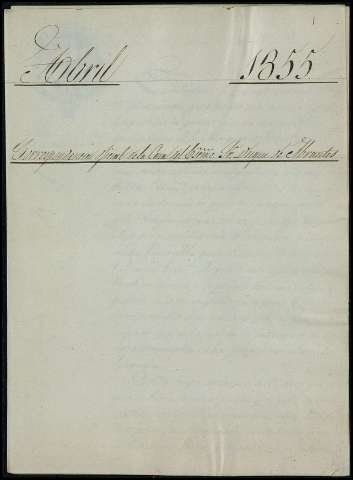 Abril 1855
Correspondencia oficial de la Casa del Excmo. Sr. Duque de Abrantes